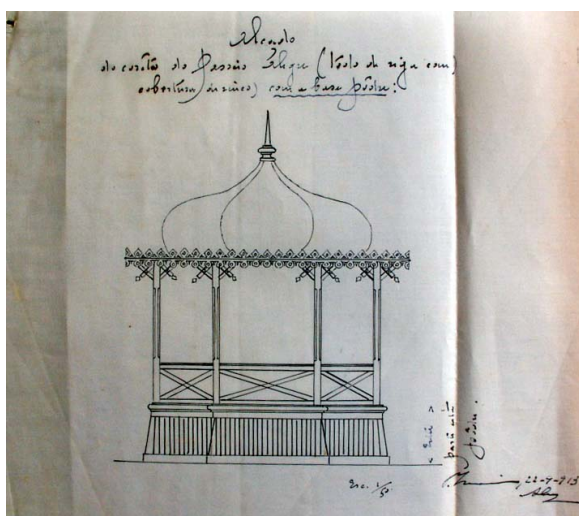 Alçado
do corêto do Passeio Alegre (todo de riga com
cobertura de zinco) com a base pôdre:
Esc. 1/50
esta
pôdre.
22-9-913